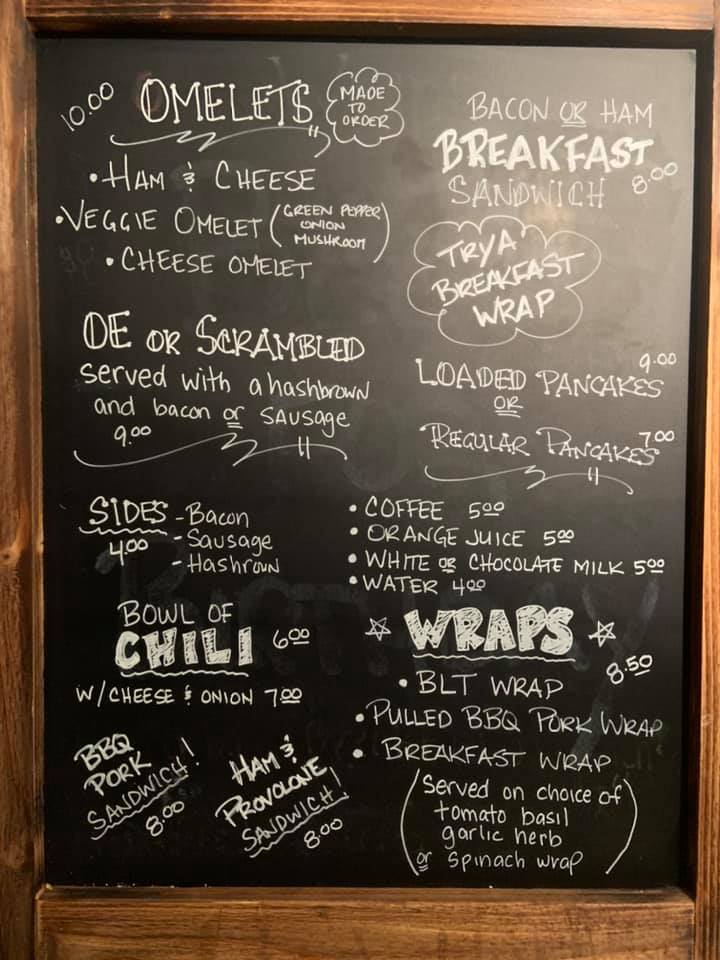 10.00 OMELETS
MADE
TO
ORDER
• HAM & CHEESE
• VEGGIE OMELET (GREEN PEPPER
ONION
MUSHROOM)
• CHEESE OMELET
BACON OR HAM
BREAKFAST
SANDWICH 8.00
TRY A
BREAKFAST
WRAP
OE OR SCRAMBLED
served with a hashbrown
and bacon or sausage
9.00
9.00
LOADED PANCAKES
OR
REGULAR PANCAKES 7.00
SIDES - Bacon
4.00 - Sausage
- Hashrown
• COFFEE 5.00
• ORANGE JUICE 5.00
• WHITE OR CHOCOLATE MILK 5.00
• WATER 4.00
BOWL OF
CHILI 6.00
W/CHEESE & ONION 7.00
BBQ
PORK
SANDWICH!
8.00
HAM &
PROVOLONE
SANDWICH!
8.00
☆ WRAPS ☆
8.50
• BLT WRAP
• PULLED BBQ PORK WRAP
• BREAKFAST WRAP
(Served on choice of
tomato basil
garlic herb
or spinach wrap)